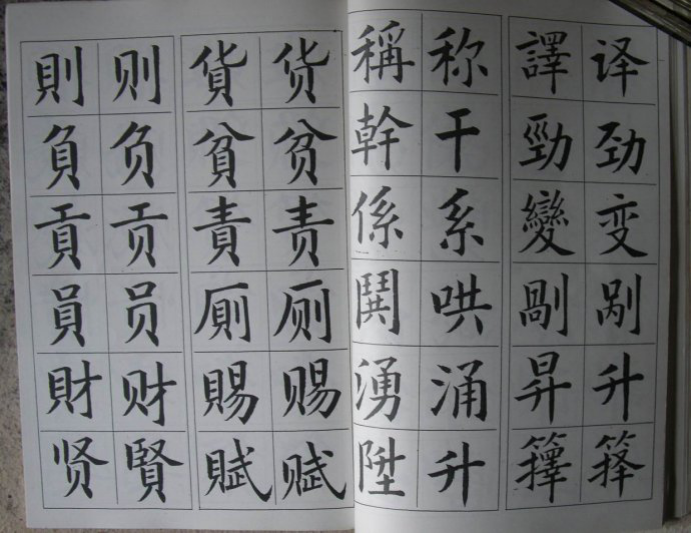 則 则 貨 货 稱 称 譯 译
負 负 貧 贫 幹 干 勁 劲
貢 贡 責 责 係 系 變 变
員 员 厠 厕 鬨 哄 剮 剐
財 财 賜 赐 湧 涌 昇 升
贤 賢 賦 赋 陞 升 籜 箨